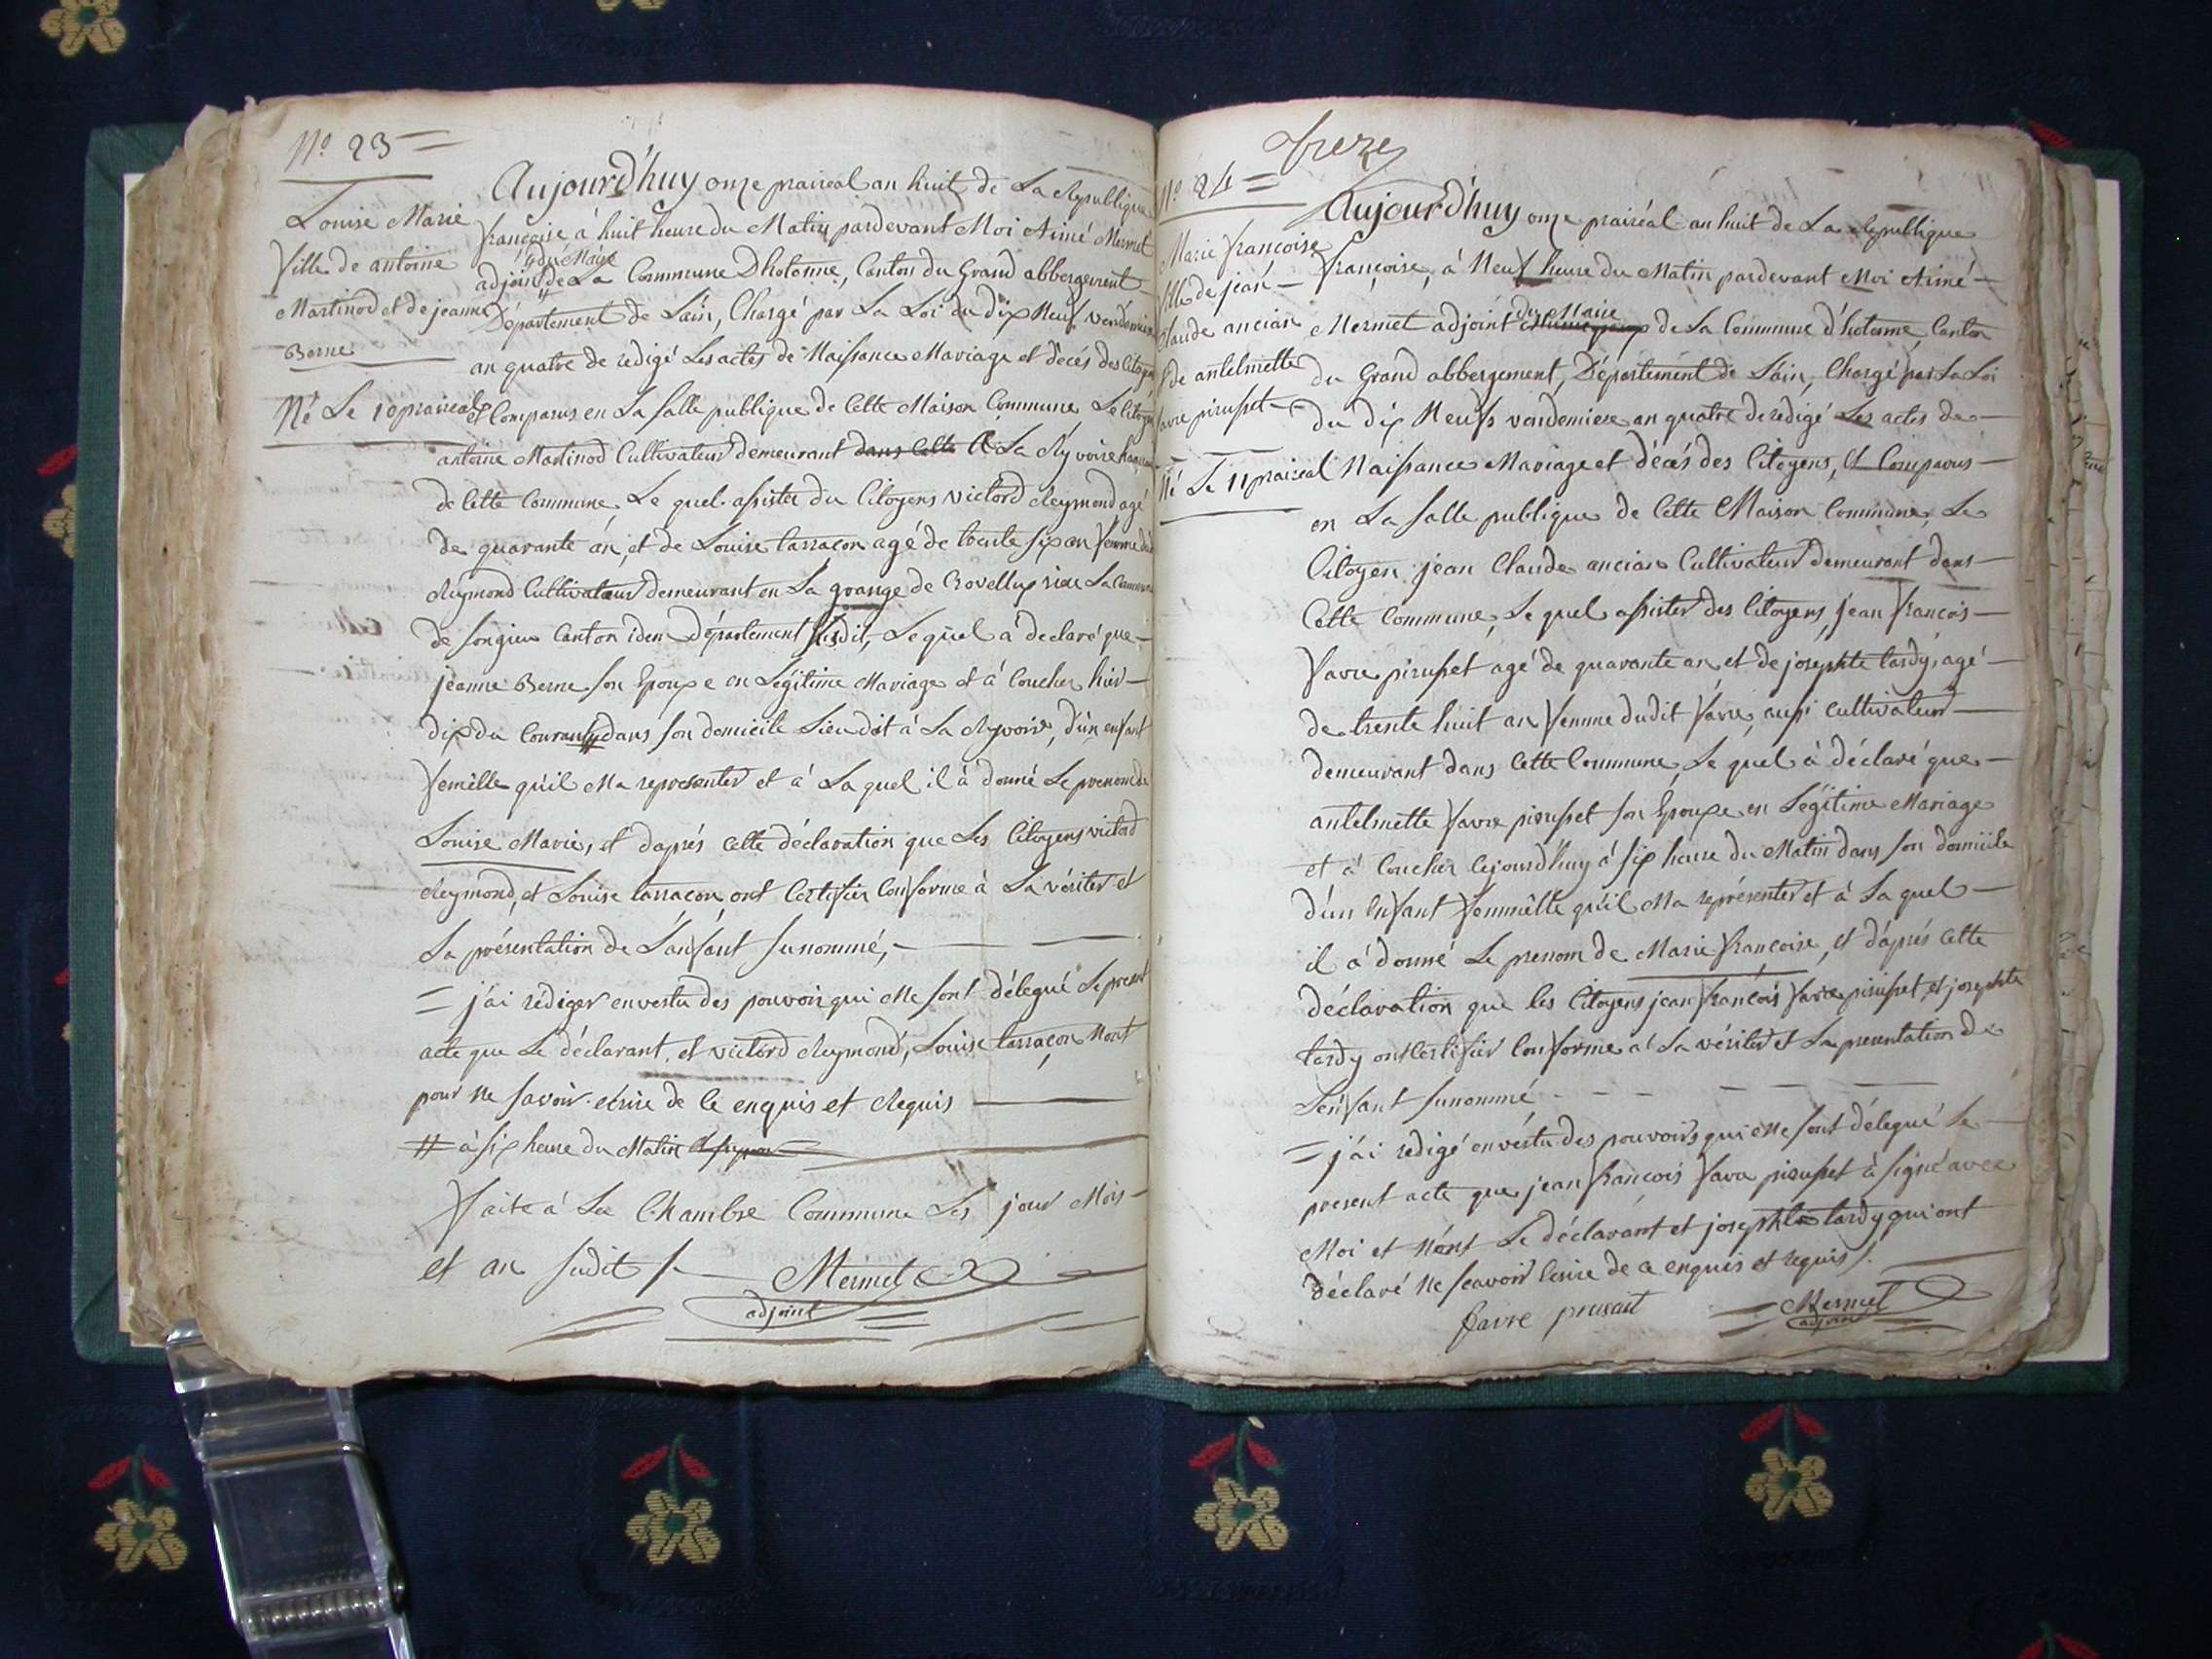 N.º 23 =
Louise Marie
fille de antoine
Martinod et de jeanne
Berne
Né Le 10 praireal
Aujourd'huy onze praireal an huit de La Republique
françoise à huit heure du Matin pardevant Moi Aimé Mermet
du Maire
adjoint de La Commune Dhotonne, Canton du Grand abbergement
Département de Lain, Chargé par La Loi du dix Neuf vendemiaire
an quatre de redigé Les actes de Naissance Mariage et décés des Citoyens
et Comparus en La salle publique de Cette Maison Commune, Le Citoyen
antoine Martinod Cultivateur demeurant dans Cette A La Ryvoire
de Cette Commune, Le quel assister du Citoyens victord Reymond agé
de quarante an, et de Louise tarracon agé de trente six an femme dudit
Reymond Cultivateur demeurant en La grange de Rovellux rière La Commune
de songieu Canton idem département susdit, Le quel à declaré que
jeanne Berne son Epouxe en Légitime Mariage et à Coucher hier
dix du Courant dans son domicile Lieu dit à La Ryvoire, d'un enfant
femêlle qu'il Ma representer et à La quel il à donné Le prenom de
Louise Marie, et daprés Cette déclaration que Les Citoyens victord
Reymond, et Louise tarracon, ont Certifier Conforme à La vériter et
La présentation de L'anfant sunommé, —
= j'ai rédiger en vertu des pouvoir qui Me sont délegué Le present
acte que Le déclarant, et victord Reymond, Louise tarraçon Nont
pour ne savoir écrire de Ce enquis et Requis
# à six heure du Matin
faite à La Chambre Commune Les jour Mois
et an sudit /. Mermet
adjoint
treze
N.º 24 =
Marie françoise
fille de jean
Claude ancian
& de antelmette
favre pirusset
Né Le 11 praireal
Aujourd'huy onze prairéal an huit de La Republique
françoise, à Neuf heure du Matin pardevant Moi Aimé
du Maire
Mermet adjoint de La Commune d'hotonne, Canton
du Grand abbergement, Département de Lain, Chargé par La Loi
du dix Neufs vendemiere an quatre de redigé Les actes de
Naissance Mariage et décés des Citoyens, et Comparus
en La salle publique de Cette Maison Commune, Le
Citoyen jean Claude ancian Cultivateur demeurant dans
Cette Commune, Le quel assister des Citoyens, jean françois
favre pirusset agé de quarante an, et de josephte tardy, agé
de trente huit an femme dudit favre, aussi cultivateur
demeurant dans Cette Commune, Le quel à déclaré que
antelmette favre pirusset son Epouxe en Légitime Mariage
et à Coucher Cejourd'huy à six heure du Matin dans son domicile
d'un Enfant femmêlle qu'il Ma représenter et à La quel
il à donné Le prenom de Marie françoise, et d'aprés Cette
déclaration que les Citoyens jean françois favre pirusset, et josephte
tardy ont Certifier Conforme à La vériter et La presentation de
L'enfant sunommé
= j'ai redigé en vértu des pouvoirs qui Me sont délegué Le
present acte que jean françois favre pirusset à signé avec
Moi et Nont Le déclarant et josephte tardy qui ont
déclaré Ne scavoir Ecrire de ce enquis et requis /.
favre prusait Mermet
adjoint